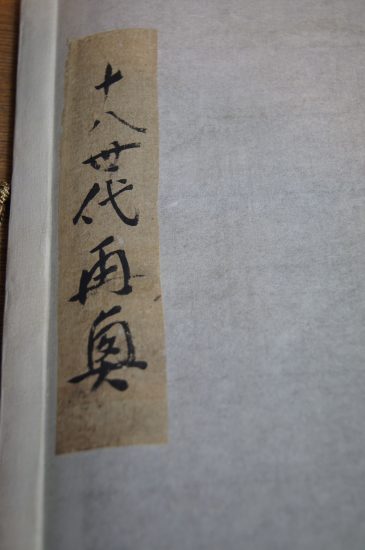 十八世代再興